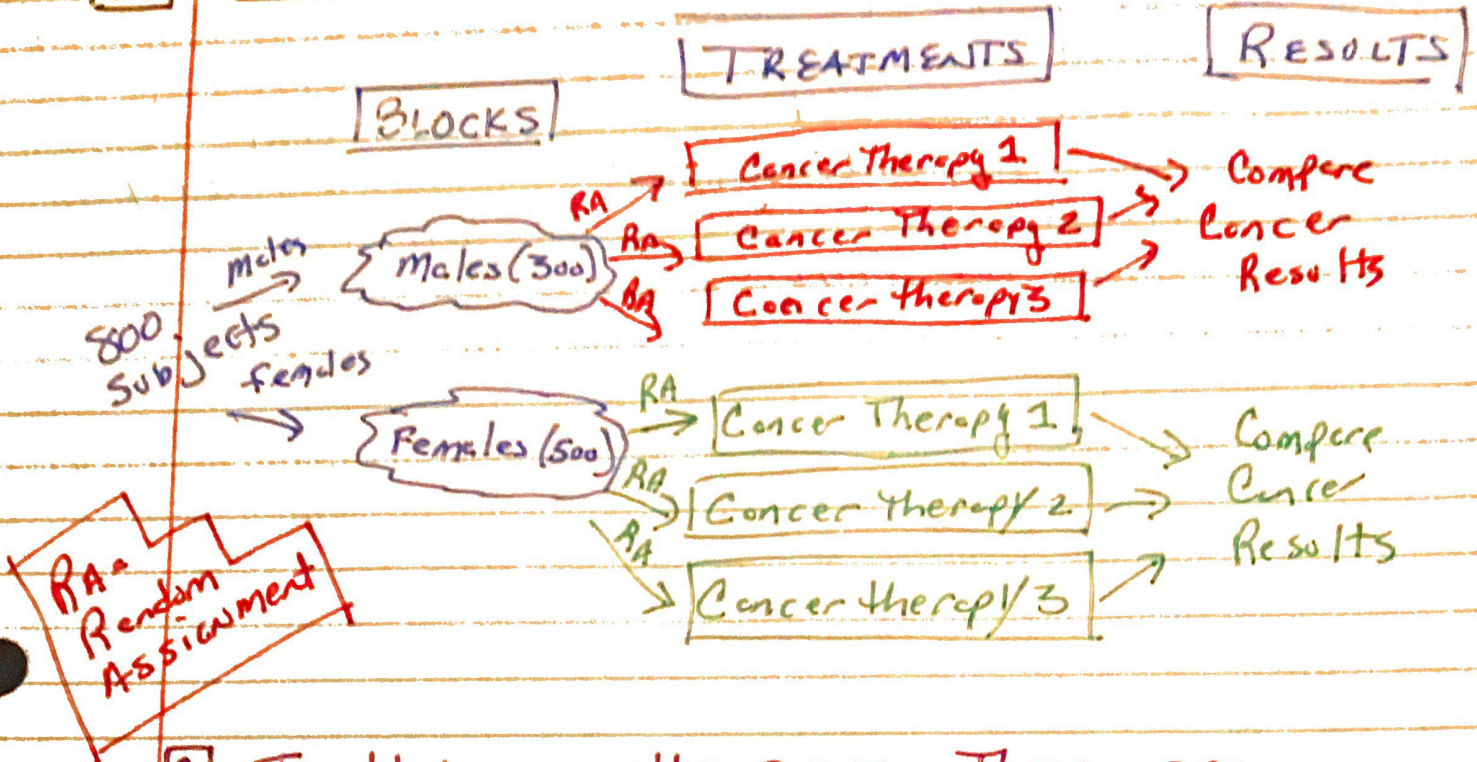 BLOCKS
TREATMENTS
RESULTS
800
Subjects
males
females
Males (300)
RA
RA
RA
Cancer Therapy 1
Cancer Therapy 2
Cancer therapy 3
Compare
Cancer
Results
Females (500)
RA
RA
RA
Cancer Therapy 1
Cancer therapy 2
Cancer therapy 3
Compare
Cancer
Results
RA=
Random
Assignment